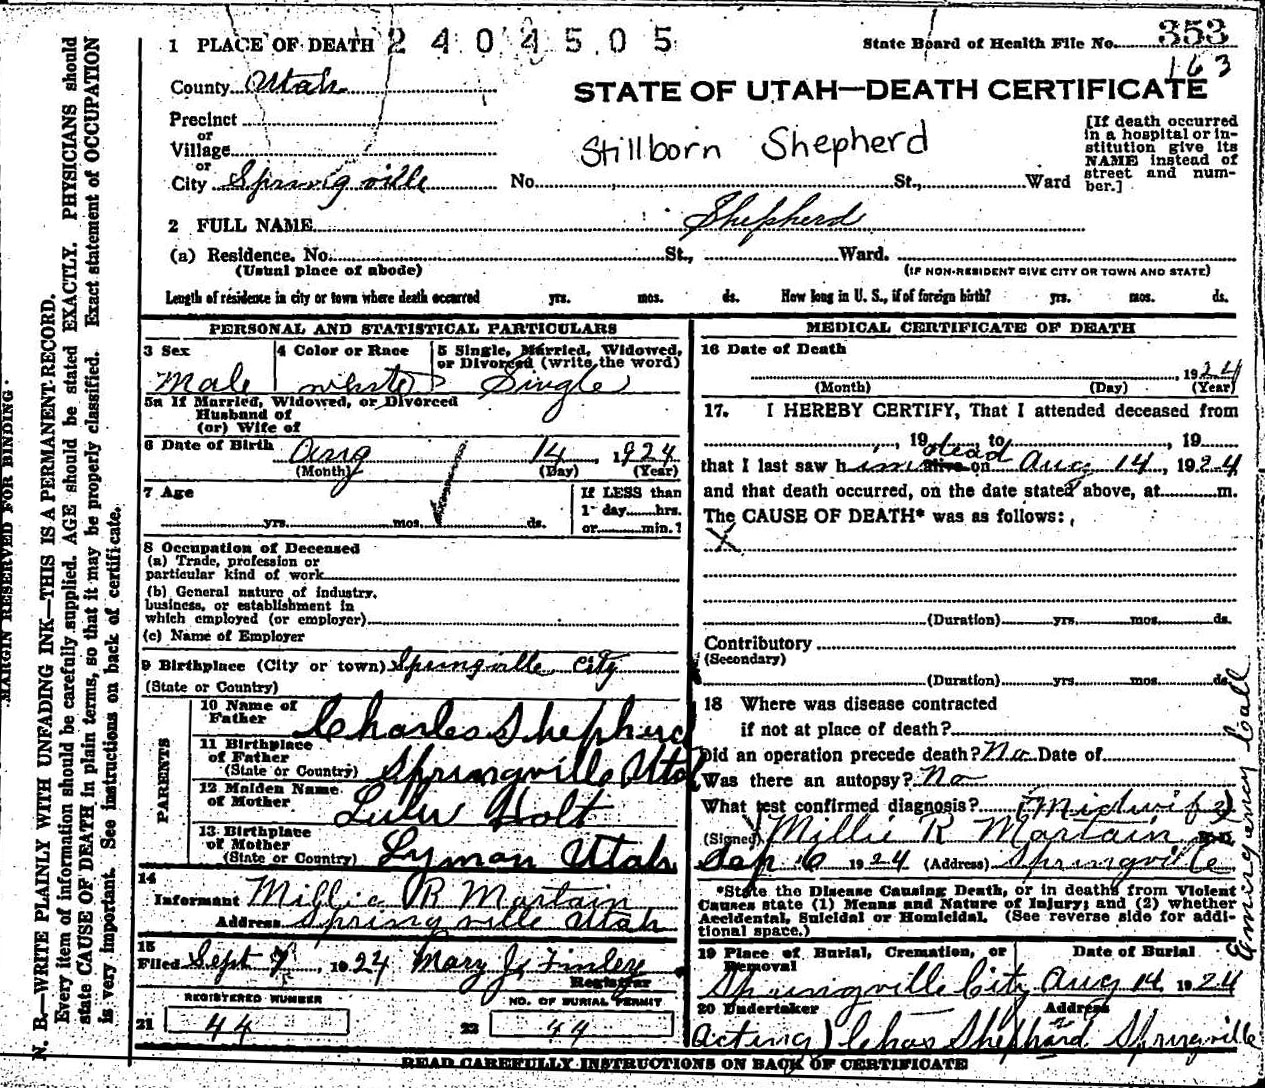 1 PLACE OF DEATH 2404505
State Board of Health File No. 353
163
County Utah
STATE OF UTAH—DEATH CERTIFICATE
Precinct
or
Village
or
City Springville No. St., Ward
Stillborn Shepherd
[If death occurred
in a hospital or in-
stitution give its
NAME instead of
street and num-
ber.]
2 FULL NAME Shepherd
(a) Residence. No. St., Ward.
(Usual place of abode) (IF NON-RESIDENT GIVE CITY OR TOWN AND STATE)
Length of residence in city or town where death occurred yrs. mos. ds. How long in U. S., if of foreign birth? yrs. mos. ds.
PERSONAL AND STATISTICAL PARTICULARS
3 Sex
Male
4 Color or Race
5 Single, Married, Widowed,
or Divorced (write the word)
Single
5a If Married, Widowed, or Divorced
Husband of
(or) Wife of
6 Date of Birth Aug 14, 1924
(Month) (Day) (Year)
7 Age
yrs. mos. ds.
If LESS than
1 day hrs.
or min.?
8 Occupation of Deceased
(a) Trade, profession or
particular kind of work
(b) General nature of industry,
business, or establishment in
which employed (or employer)
(c) Name of Employer
9 Birthplace (City or town) Springville City
(State or Country)
PARENTS
10 Name of
Father Charles Shepherd
11 Birthplace
of Father
(State or Country) Springville Utah
12 Maiden Name
of Mother Lulu Holt
13 Birthplace
of Mother
(State or Country) Lyman Utah
14
Informant Millie R Martain
Address Springville Utah
15
Filed Sept 7, 1924 Mary J. Finley
Registrar
REGISTERED NUMBER NO. OF BURIAL PERMIT
21 44 22 44
MEDICAL CERTIFICATE OF DEATH
16 Date of Death
1924
(Month) (Day) (Year)
17. I HEREBY CERTIFY, That I attended deceased from
, 19 to , 19
dead
that I last saw him alive on Aug 14, 1924
and that death occurred, on the date stated above, at m.
The CAUSE OF DEATH* was as follows:
X
(Duration) yrs. mos. ds.
Contributory
(Secondary)
(Duration) yrs. mos. ds.
18 Where was disease contracted
if not at place of death?
Did an operation precede death? No Date of
Was there an autopsy? No
What test confirmed diagnosis? (Midwife)
(Signed) Millie R Martain M. D.
Sep 6 1924 (Address) Springville
*State the Disease Causing Death, or in deaths from Violent
Causes state (1) Means and Nature of Injury; and (2) whether
Accidental, Suicidal or Homicidal. (See reverse side for addi-
tional space.)
19 Place of Burial, Cremation, or
Removal
Springville City
Date of Burial
Aug 14 1924
20 Undertaker Address
Acting) Chas Shephard Springville
Emirgency Call
READ CAREFULLY INSTRUCTIONS ON BACK OF CERTIFICATE
MARGIN RESERVED FOR BINDING
N. B.—WRITE PLAINLY WITH UNFADING INK—THIS IS A PERMANENT RECORD.
Every item of information should be carefully supplied. AGE should be stated EXACTLY. PHYSICIANS should
state CAUSE OF DEATH in plain terms, so that it may be properly classified. Exact statement of OCCUPATION
is very important. See instructions on back of certificate.